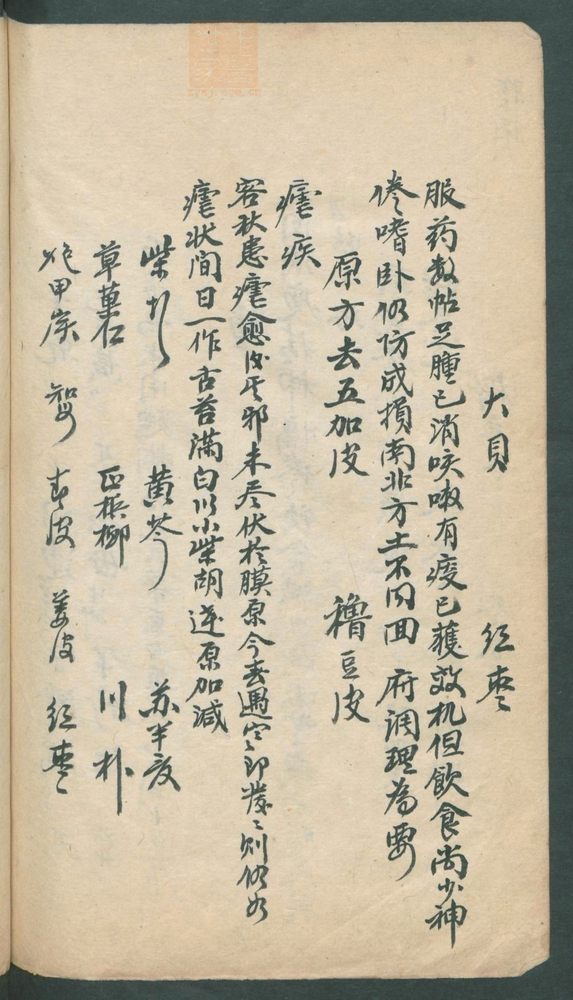 大貝 红枣
服药数帖足腫已消咳嗽有痰已獲效机但飲食尚少神
倦嗜卧仍防成損南北方土不同回府調理為要
原方去五加皮 穭豆皮
瘧疾
客秋患瘧愈後其邪未尽伏於膜原今春遇空即發、則仍如
瘧状间日一作舌苔滿白以小柴胡達原加減
柴胡 黄芩 苏半夏
草菓仁 正梹榔 川朴
炮甲炭 知母 青皮 姜皮 红枣